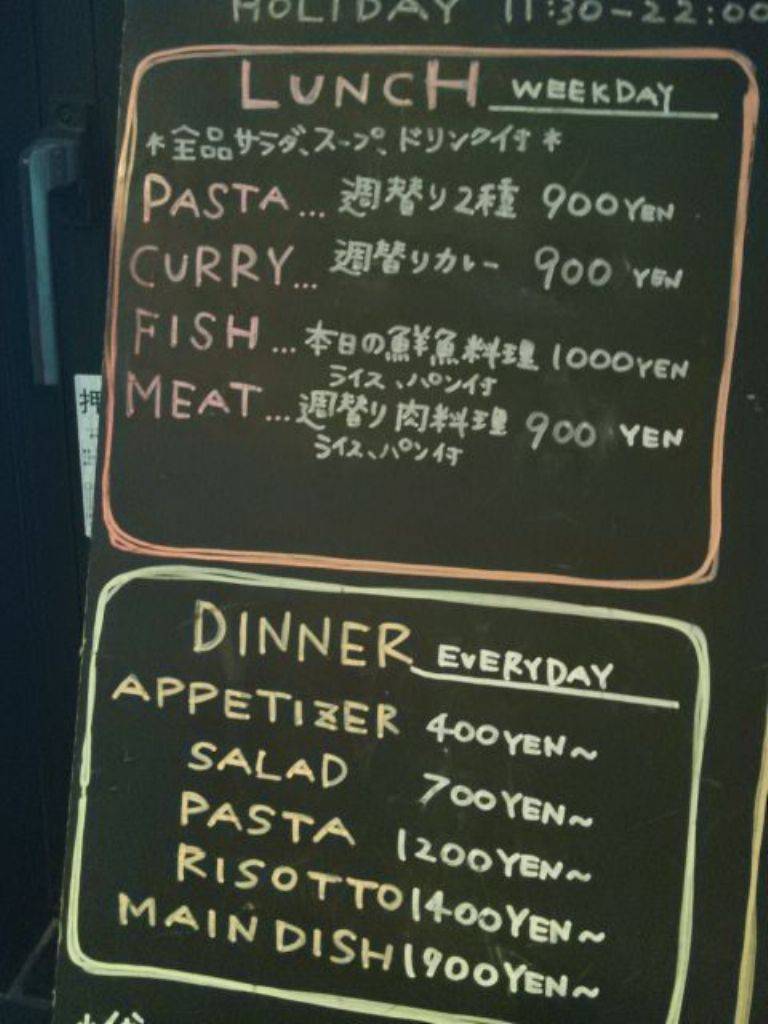 HOLIDAY 11:30-22:00
LUNCH WEEKDAY
*全品サラダ、スープ、ドリンク付*
PASTA... 週替り2種 900YEN
CURRY... 週替りカレー 900 YEN
FISH... 本日の鮮魚料理 1000YEN
ライス、パン付
MEAT... 週替り肉料理 900 YEN
ライス、パン付
押
DINNER EVERYDAY
APPETIZER 400YEN~
SALAD 700YEN~
PASTA 1200YEN~
RISOTTO 1400YEN~
MAIN DISH 1900YEN~